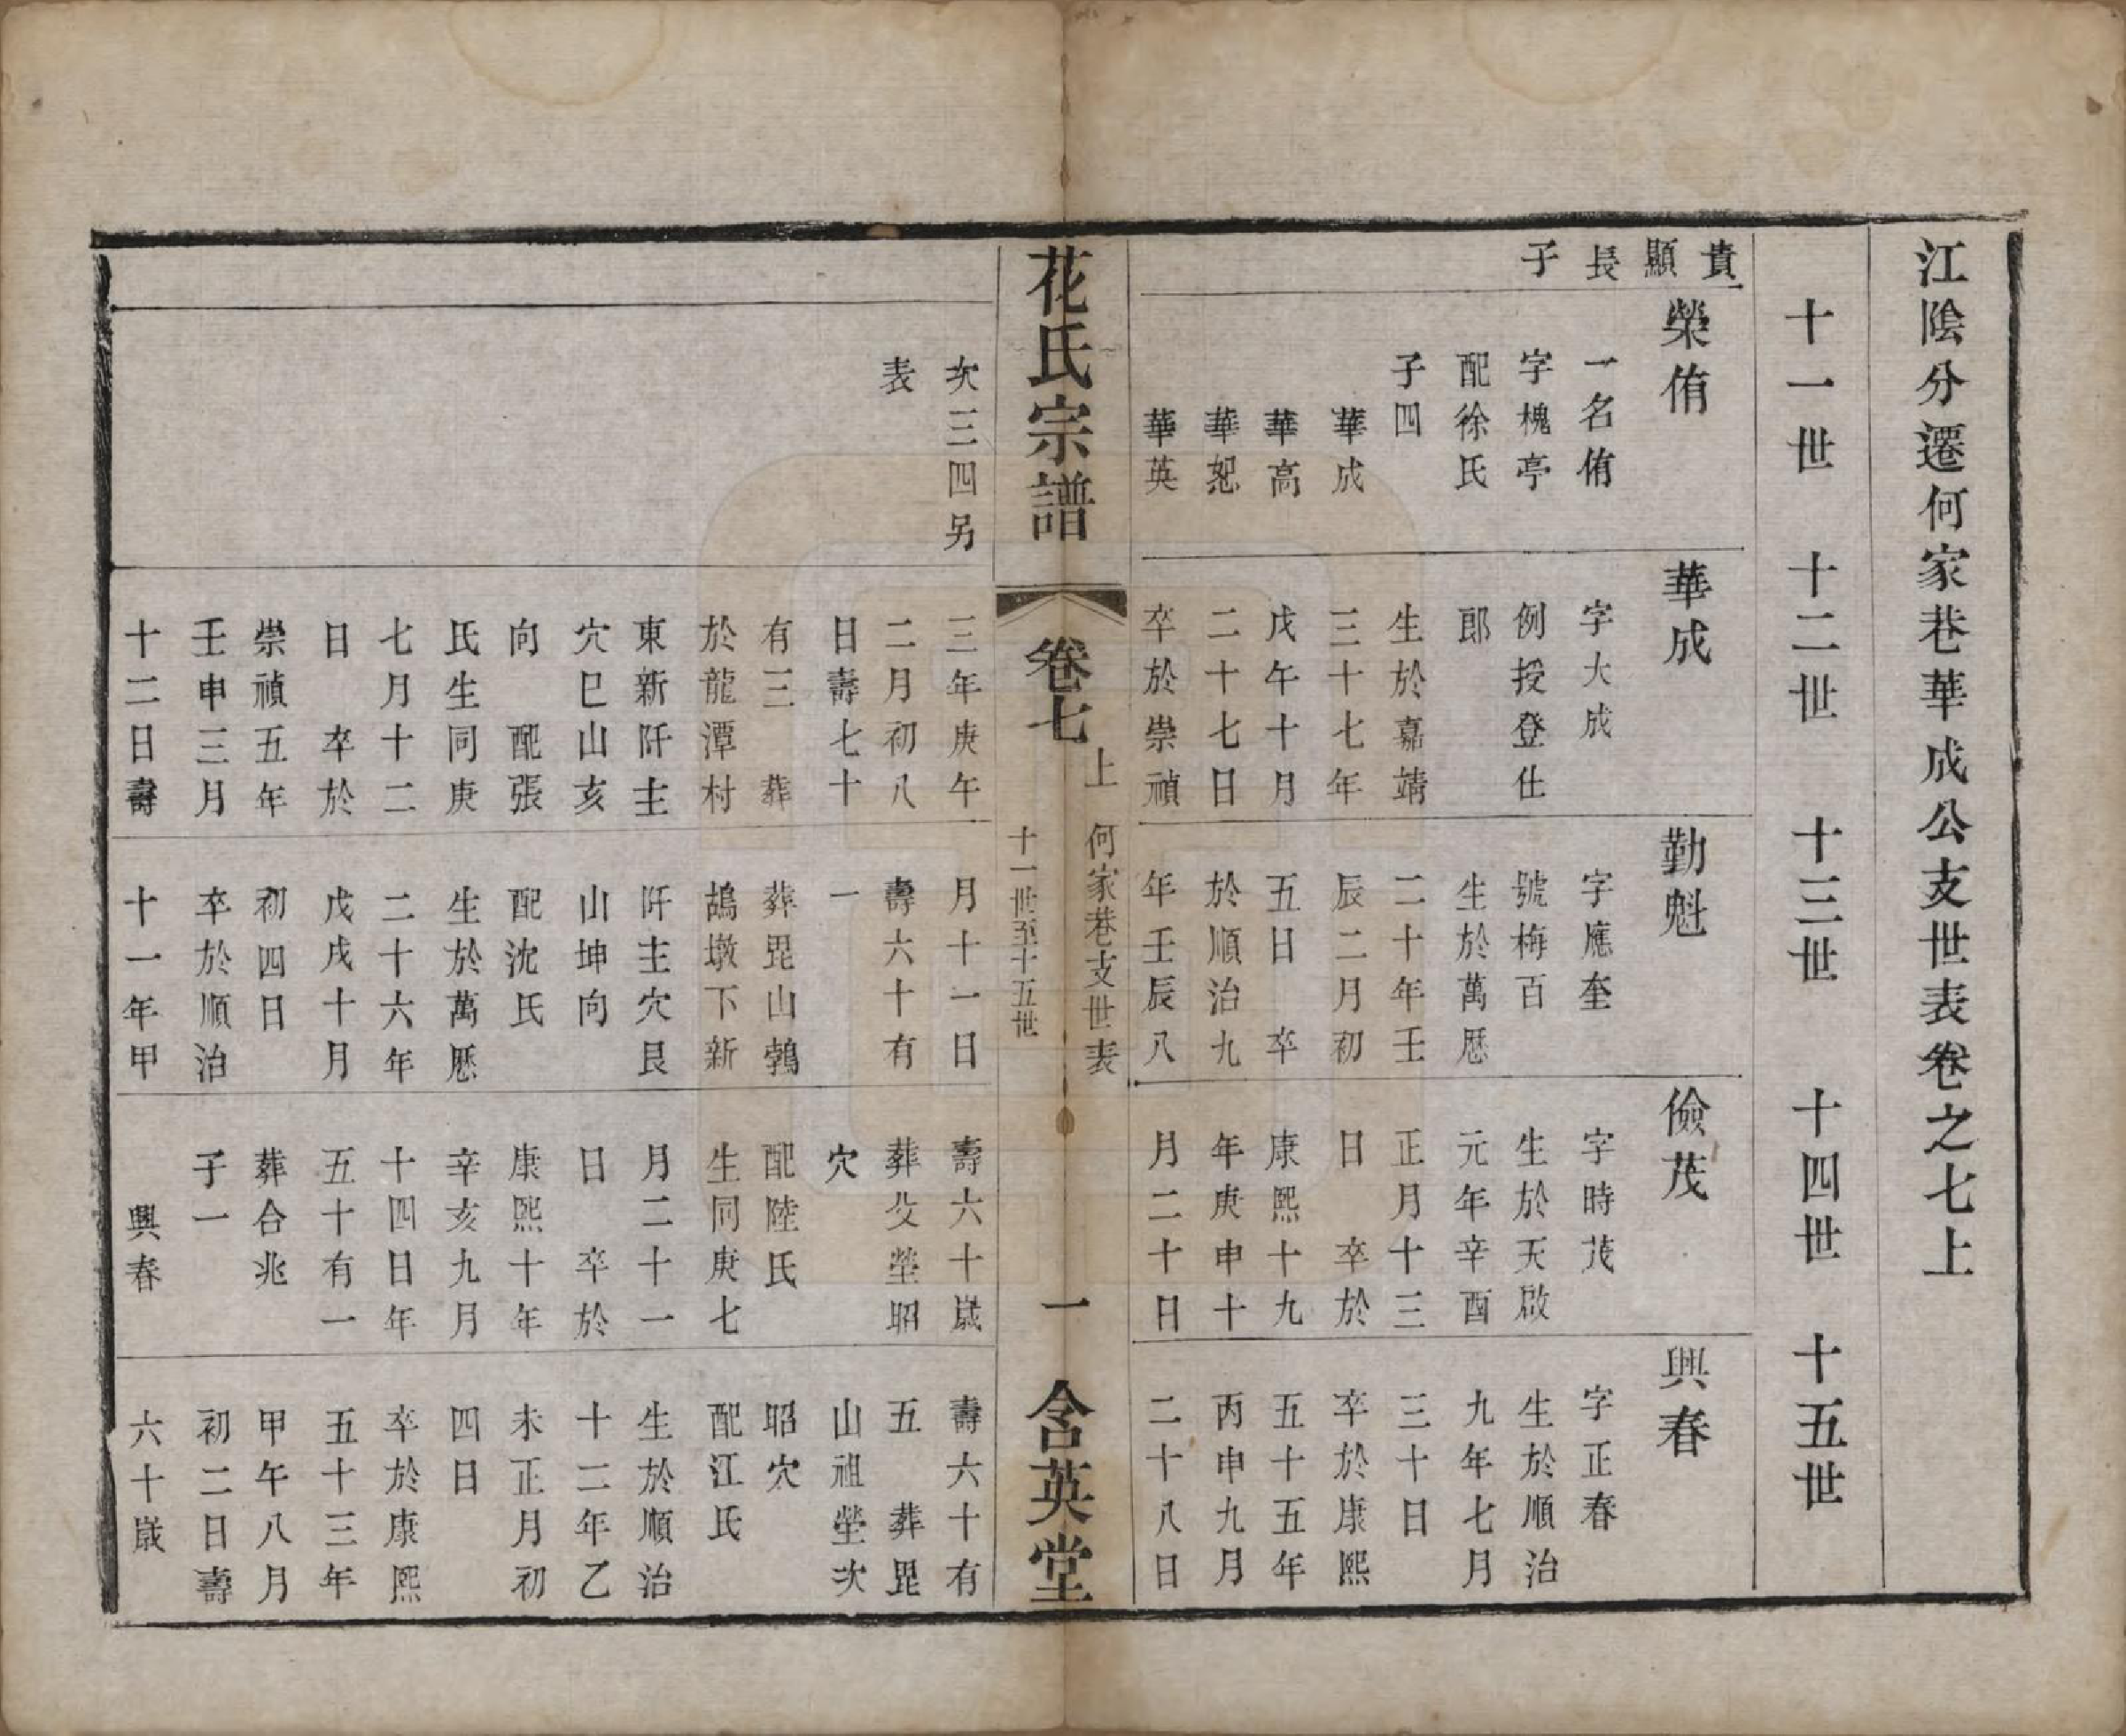 江陰分遷何家巷華成公支世表卷之七上
十一世
十二世
十三世
十四世
十五世
貴
顯
長
子
榮侑
一名侑
字槐亭
配徐氏
子四
華成
華高
華恕
華英
次三四另
表
華成
字大成
例授登仕
郎
生於嘉靖
三十七年
戊午十月
二十七日
卒於崇禎
三年庚午
二月初八
日壽七十
有三　葬
於龍潭村
東新阡主
穴巳山亥
向　配張
氏生同庚
七月十二
日　卒於
崇禎五年
壬申三月
十二日壽
勤魁
字應奎
號梅百
生於萬厯
二十年壬
辰二月初
五日　卒
於順治九
年壬辰八
月十一日
壽六十有
一
葬毘山鵓
鴣墩下新
阡主穴艮
山坤向
配沈氏
生於萬厯
二十六年
戊戌十月
初四日
卒於順治
十一年甲
儉茂
字時茂
生於天啟
元年辛酉
正月十三
日　卒於
康熙十九
年庚申十
月二十日
壽六十歲
葬父塋昭
穴
配陸氏
生同庚七
月二十一
日　卒於
康熙十年
辛亥九月
十四日年
五十有一
葬合兆
子一
興春
興春
字正春
生於順治
九年七月
三十日
卒於康熙
五十五年
丙申九月
二十八日
壽六十有
五　葬毘
山祖塋次
昭穴
配江氏
生於順治
十二年乙
未正月初
四日
卒於康熙
五十三年
甲午八月
初二日壽
六十歲
花氏宗譜
卷七
上
何家巷支世表
十一世至十五世
一
含英堂